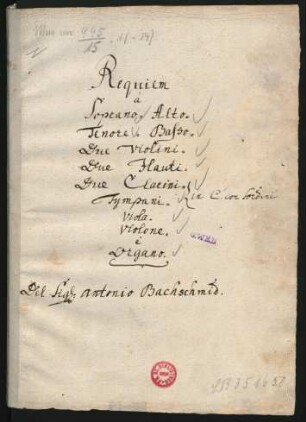 Mus. ms. 995/15 (1-14)
Requiem
a
Soprano, Alto.
Tenore Basso.
Due Violini.
Due Flauti.
Due Clarini.
Tympani. in C. con Sordini
Viola.
Violone.
è
Organo.
Del Sigl. Antonio Bachschmid.